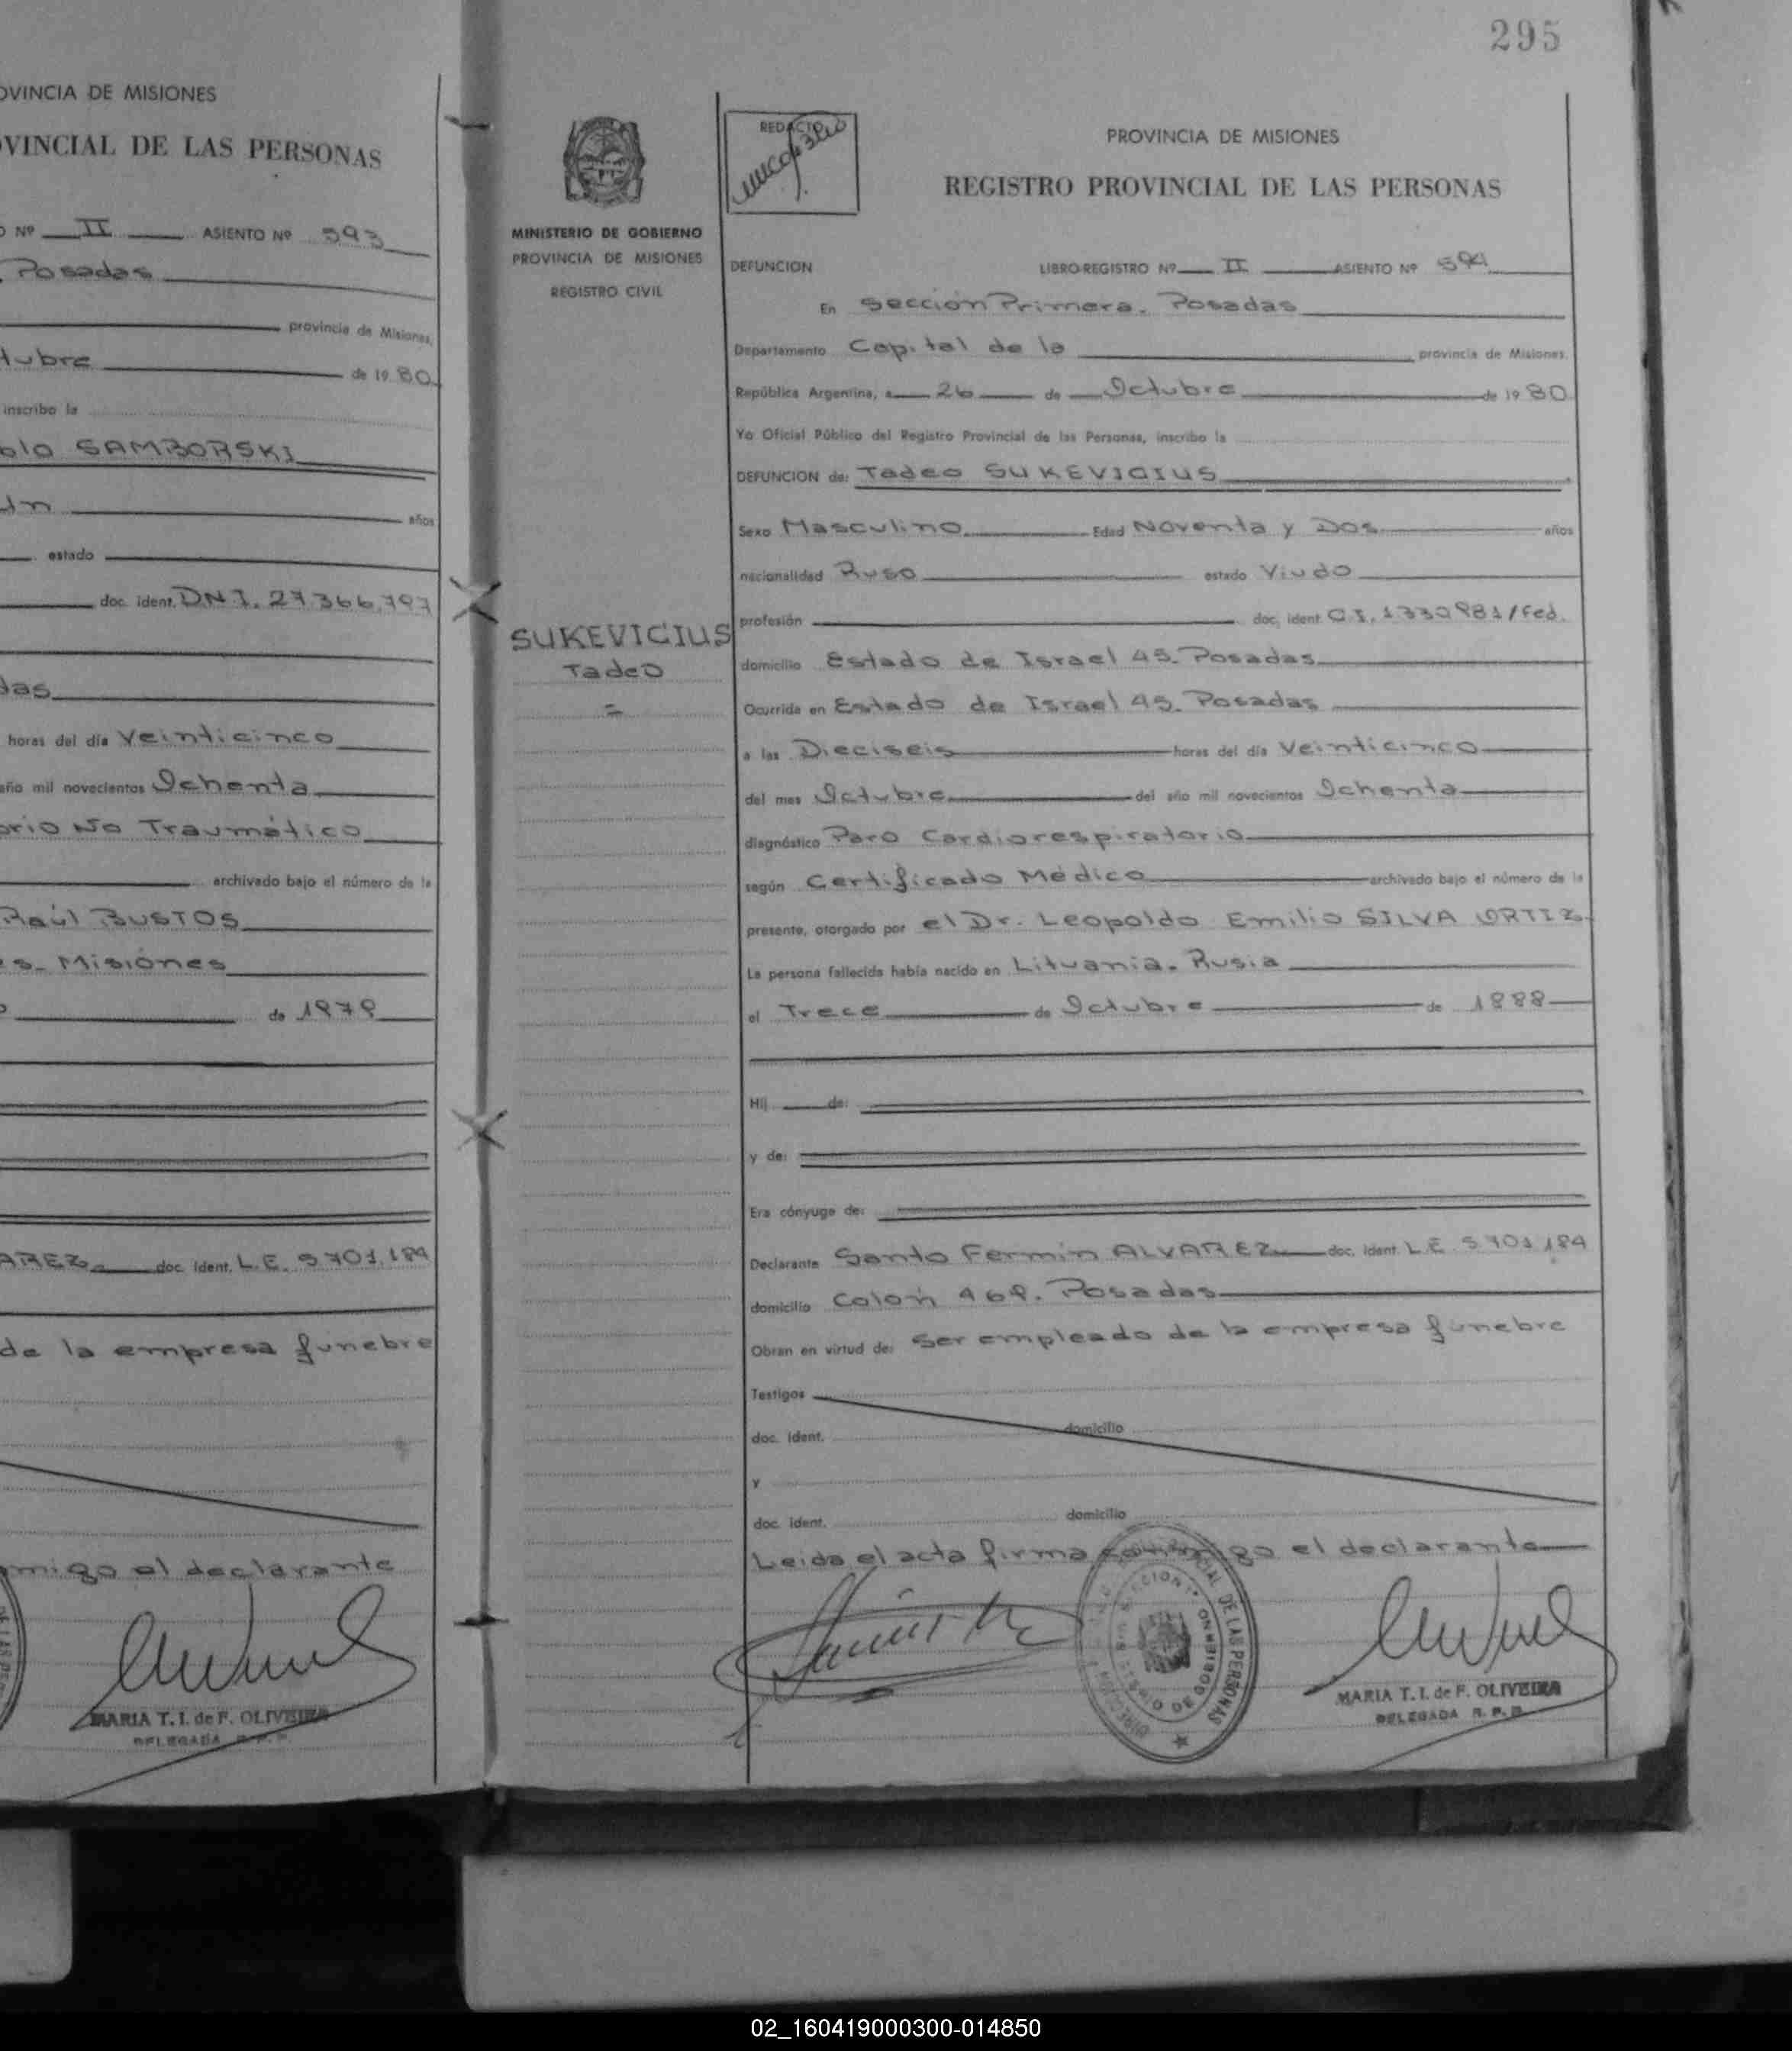 OVINCIA DE MISIONES
VINCIAL DE LAS PERSONAS
O Nº II ASIENTO Nº 593
Posadas
provincia de Misiones,
tubre de 1980
inscribo la
blo SAMBORSKI
Un años
estado
doc. ident. DNI. 27.366.797
das
horas del día Veinticinco
año mil novecientos Ochenta
orio No Traumático
archivado bajo el número de la
Raúl BUSTOS
es. Misiones
de 1979
AREZ doc. ident. L.E. 5.701.184
de la empresa fúnebre
migo el declarante
MARIA T. I. de F. OLIVEIRA
DELEGADA R. P. P.
295
MINISTERIO DE GOBIERNO
PROVINCIA DE MISIONES
REGISTRO CIVIL
SUKEVICIUS
Tadeo
=
REDACTO
PROVINCIA DE MISIONES
REGISTRO PROVINCIAL DE LAS PERSONAS
DEFUNCION LIBRO-REGISTRO Nº II ASIENTO Nº 594
En Sección Primera. Posadas
Departamento Capital de la provincia de Misiones,
República Argentina, a 26 de Octubre de 1980
Yo Oficial Público del Registro Provincial de las Personas, inscribo la
DEFUNCION de: Tadeo SUKEVICIUS
Sexo Masculino Edad Noventa y Dos años
nacionalidad Ruso estado Viudo
profesión doc. ident. C.I. 1330981/Fed.
domicilio Estado de Israel 45. Posadas
Ocurrida en Estado de Israel 45. Posadas
a las Dieciseis horas del día Veinticinco
del mes Octubre del año mil novecientos Ochenta
diagnóstico Paro Cardiorespiratorio
según Certificado Médico archivado bajo el número de la
presente, otorgado por el Dr. Leopoldo Emilio SILVA ORTIZ
La persona fallecida había nacido en Lituania. Rusia
el Trece de Octubre de 1888
Hij de:
y de:
Era cónyuge de:
Declarante Santo Fermín ALVAREZ doc. ident. L.E. 5.701.184
domicilio Colón 469. Posadas
Obran en virtud de: Ser empleado de la empresa fúnebre
Testigos
doc. ident. domicilio
y
doc. ident. domicilio
Leida el acta firma conmigo el declarante
MARIA T. I. de F. OLIVEIRA
DELEGADA R. P. P.
02_160419000300-014850